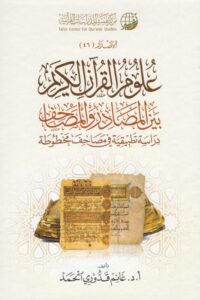 مركز تفسير للدراسات القرآنية
Tafsir Center for Qur'anic Studies
الإصدار (٤٦)
علوم القرآن الكريم
بين المصادر والمصاحف
دراسة تطبيقية في مصاحف مخطوطة
تأليف
أ.د. غانم قدوري الحمد